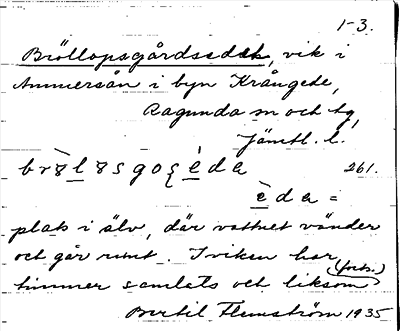 1-3.
Bröllopsgårdsedet, vik i
Ammerån i byn Krångede,
Ragunda sn och tg,
Jämtl. l.
261.
è d a =
plats i älv, där vattnet vänder
och går runt. I viken har
timmer samlats och liksom (forts.)
Bertil Flemström 1935